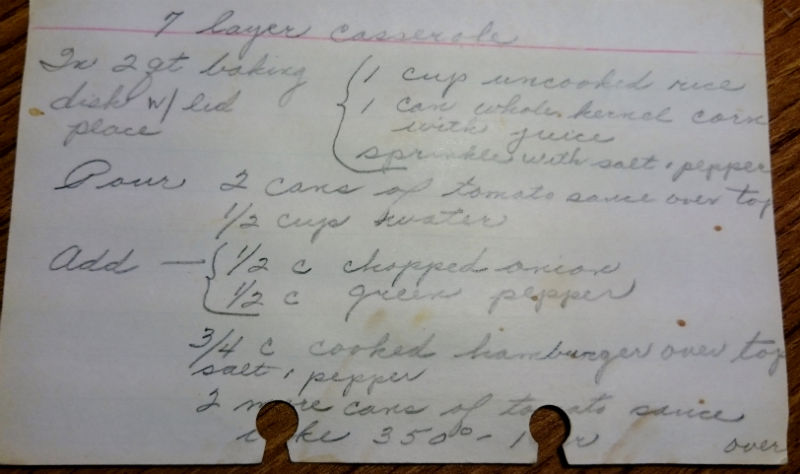 7 layer casserole
In 2 qt baking
dish w/ lid
place
1 cup uncooked rice
1 can whole kernel corn
with juice
sprinkle with salt, pepper
Pour 2 cans of tomato sauce over top
1/2 cup water
Add — 1/2 c chopped onion
1/2 c green pepper
3/4 c cooked hamburger over top
salt, pepper
2 more cans of tomato sauce
350° - 1
over